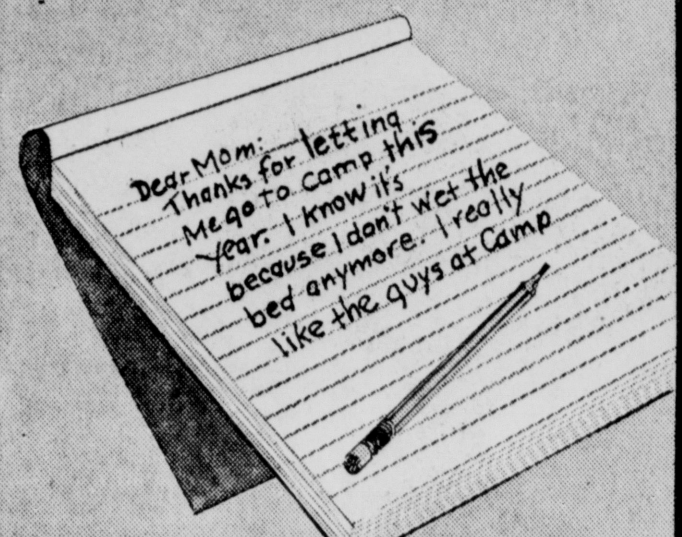 Dear Mom:
Thanks for letting
Me go to camp this
year. I know it's
because I don't wet the
bed anymore. I really
like the guys at Camp